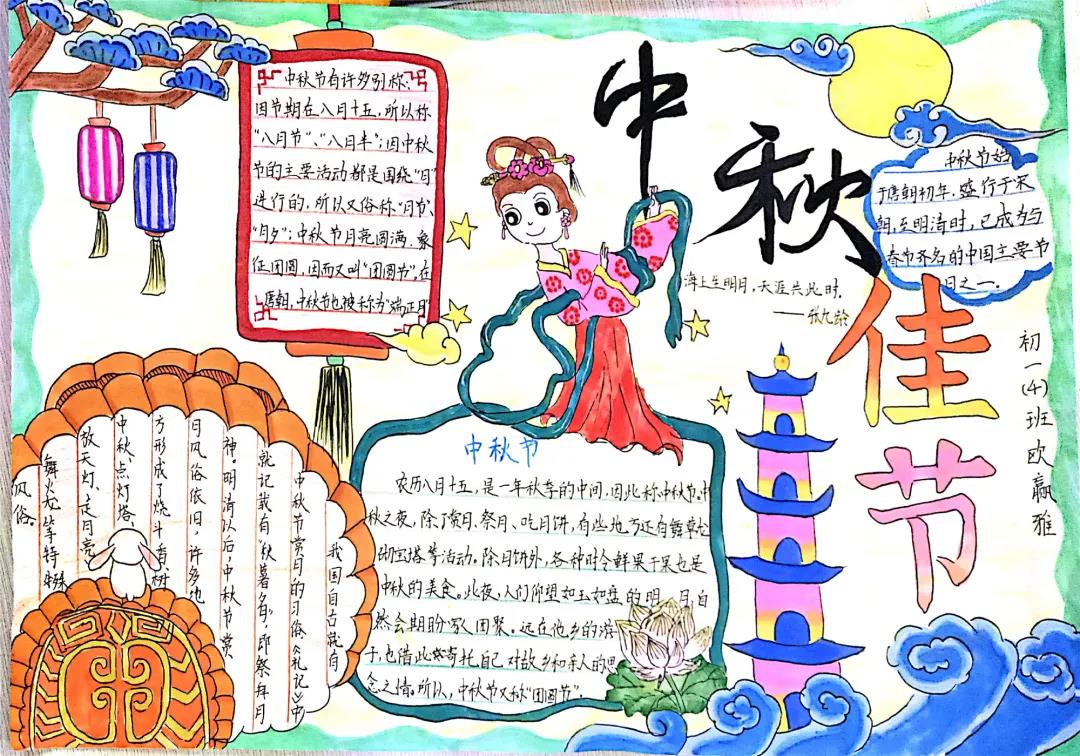 中秋佳节
中秋节有许多别称:
因节期在八月十五,所以称
"八月节"、"八月半";因中秋
节的主要活动都是围绕"月"
进行的,所以又俗称"月节"、
"月夕";中秋节月亮圆满,象
征团圆,因而又叫"团圆节",在
唐朝,中秋节也被称为"端正月"
中秋节始
于唐朝初年,盛行于宋
朝,至明清时,已成为与
春节齐名的中国主要节
日之一.
海上生明月,天涯共此时.
——张九龄
初一(4)班欧赢雅
中秋节
农历八月十五,是一年秋季的中间,因此称中秋节。中
秋之夜,除了赏月、祭月、吃月饼,有些地方还有舞草龙
动宝塔等活动。除月饼外,各种时令鲜果干果也是
中秋的美食。此夜,人们仰望如玉如盘的明月,自
然会期盼家人团聚。远在他乡的游
子,也借此寄托自己对故乡和亲人的思
念之情。所以,中秋节又称"团圆节".
我国自古就有
中秋节赏月的习俗《礼记》中
就记载有"秋暮夕月,即祭拜月
神。明清以后,中秋节赏
月风俗依旧,许多地
方形成了烧斗香、树
中秋、点灯塔、
放天灯、走月亮
舞火龙等特殊
风俗。